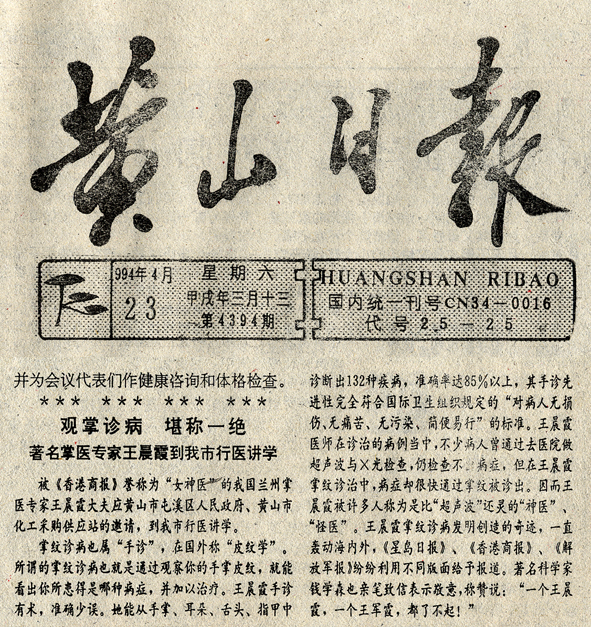 黄山日報
994年4月
23
星期六
甲戌年三月十三
第4394期
HUANGSHAN RIBAO
国内统一刊号CN34-0016
代号25-25
并为会议代表们作健康咨询和体格检查。
*** *** *** ***
观掌诊病 堪称一绝
著名掌医专家王晨霞到我市行医讲学
被《香港商报》誉称为“女神医”的我国兰州掌
医专家王晨霞大夫应黄山市屯溪区人民政府、黄山市
化工采购供应站的邀请，到我市行医讲学。
掌纹诊病也属“手诊”，在国外称“皮纹学”。
所谓的掌纹诊病也就是通过观察你的手掌皮纹，就能
看出你所患得是哪种病症，并加以治疗。王晨霞手诊
有术，准确少误。她能从手掌、耳朵、舌头、指甲中
诊断出132种疾病，准确率达85%以上，其手诊先
进性完全符合国际卫生组织规定的“对病人无损
伤、无痛苦、无污染、简便易行”的标准。王晨霞
医师在诊治的病例当中，不少病人曾通过去医院做
超声波与X光检查，仍检查不病症，但在王晨霞
掌纹诊治中，病症却很快通过掌纹被诊出。因而王
晨霞被许多人称为是比“超声波”还灵的“神医”、
“怪医”。王晨霞掌纹诊病发明创造的奇迹，一直
轰动海内外，《星岛日报》、《香港商报》、《解
放军报》纷纷利用不同版面给予报道。著名科学家
钱学森也亲笔致信表示敬意，称赞说：“一个王晨
霞，一个王军霞，都了不起！”